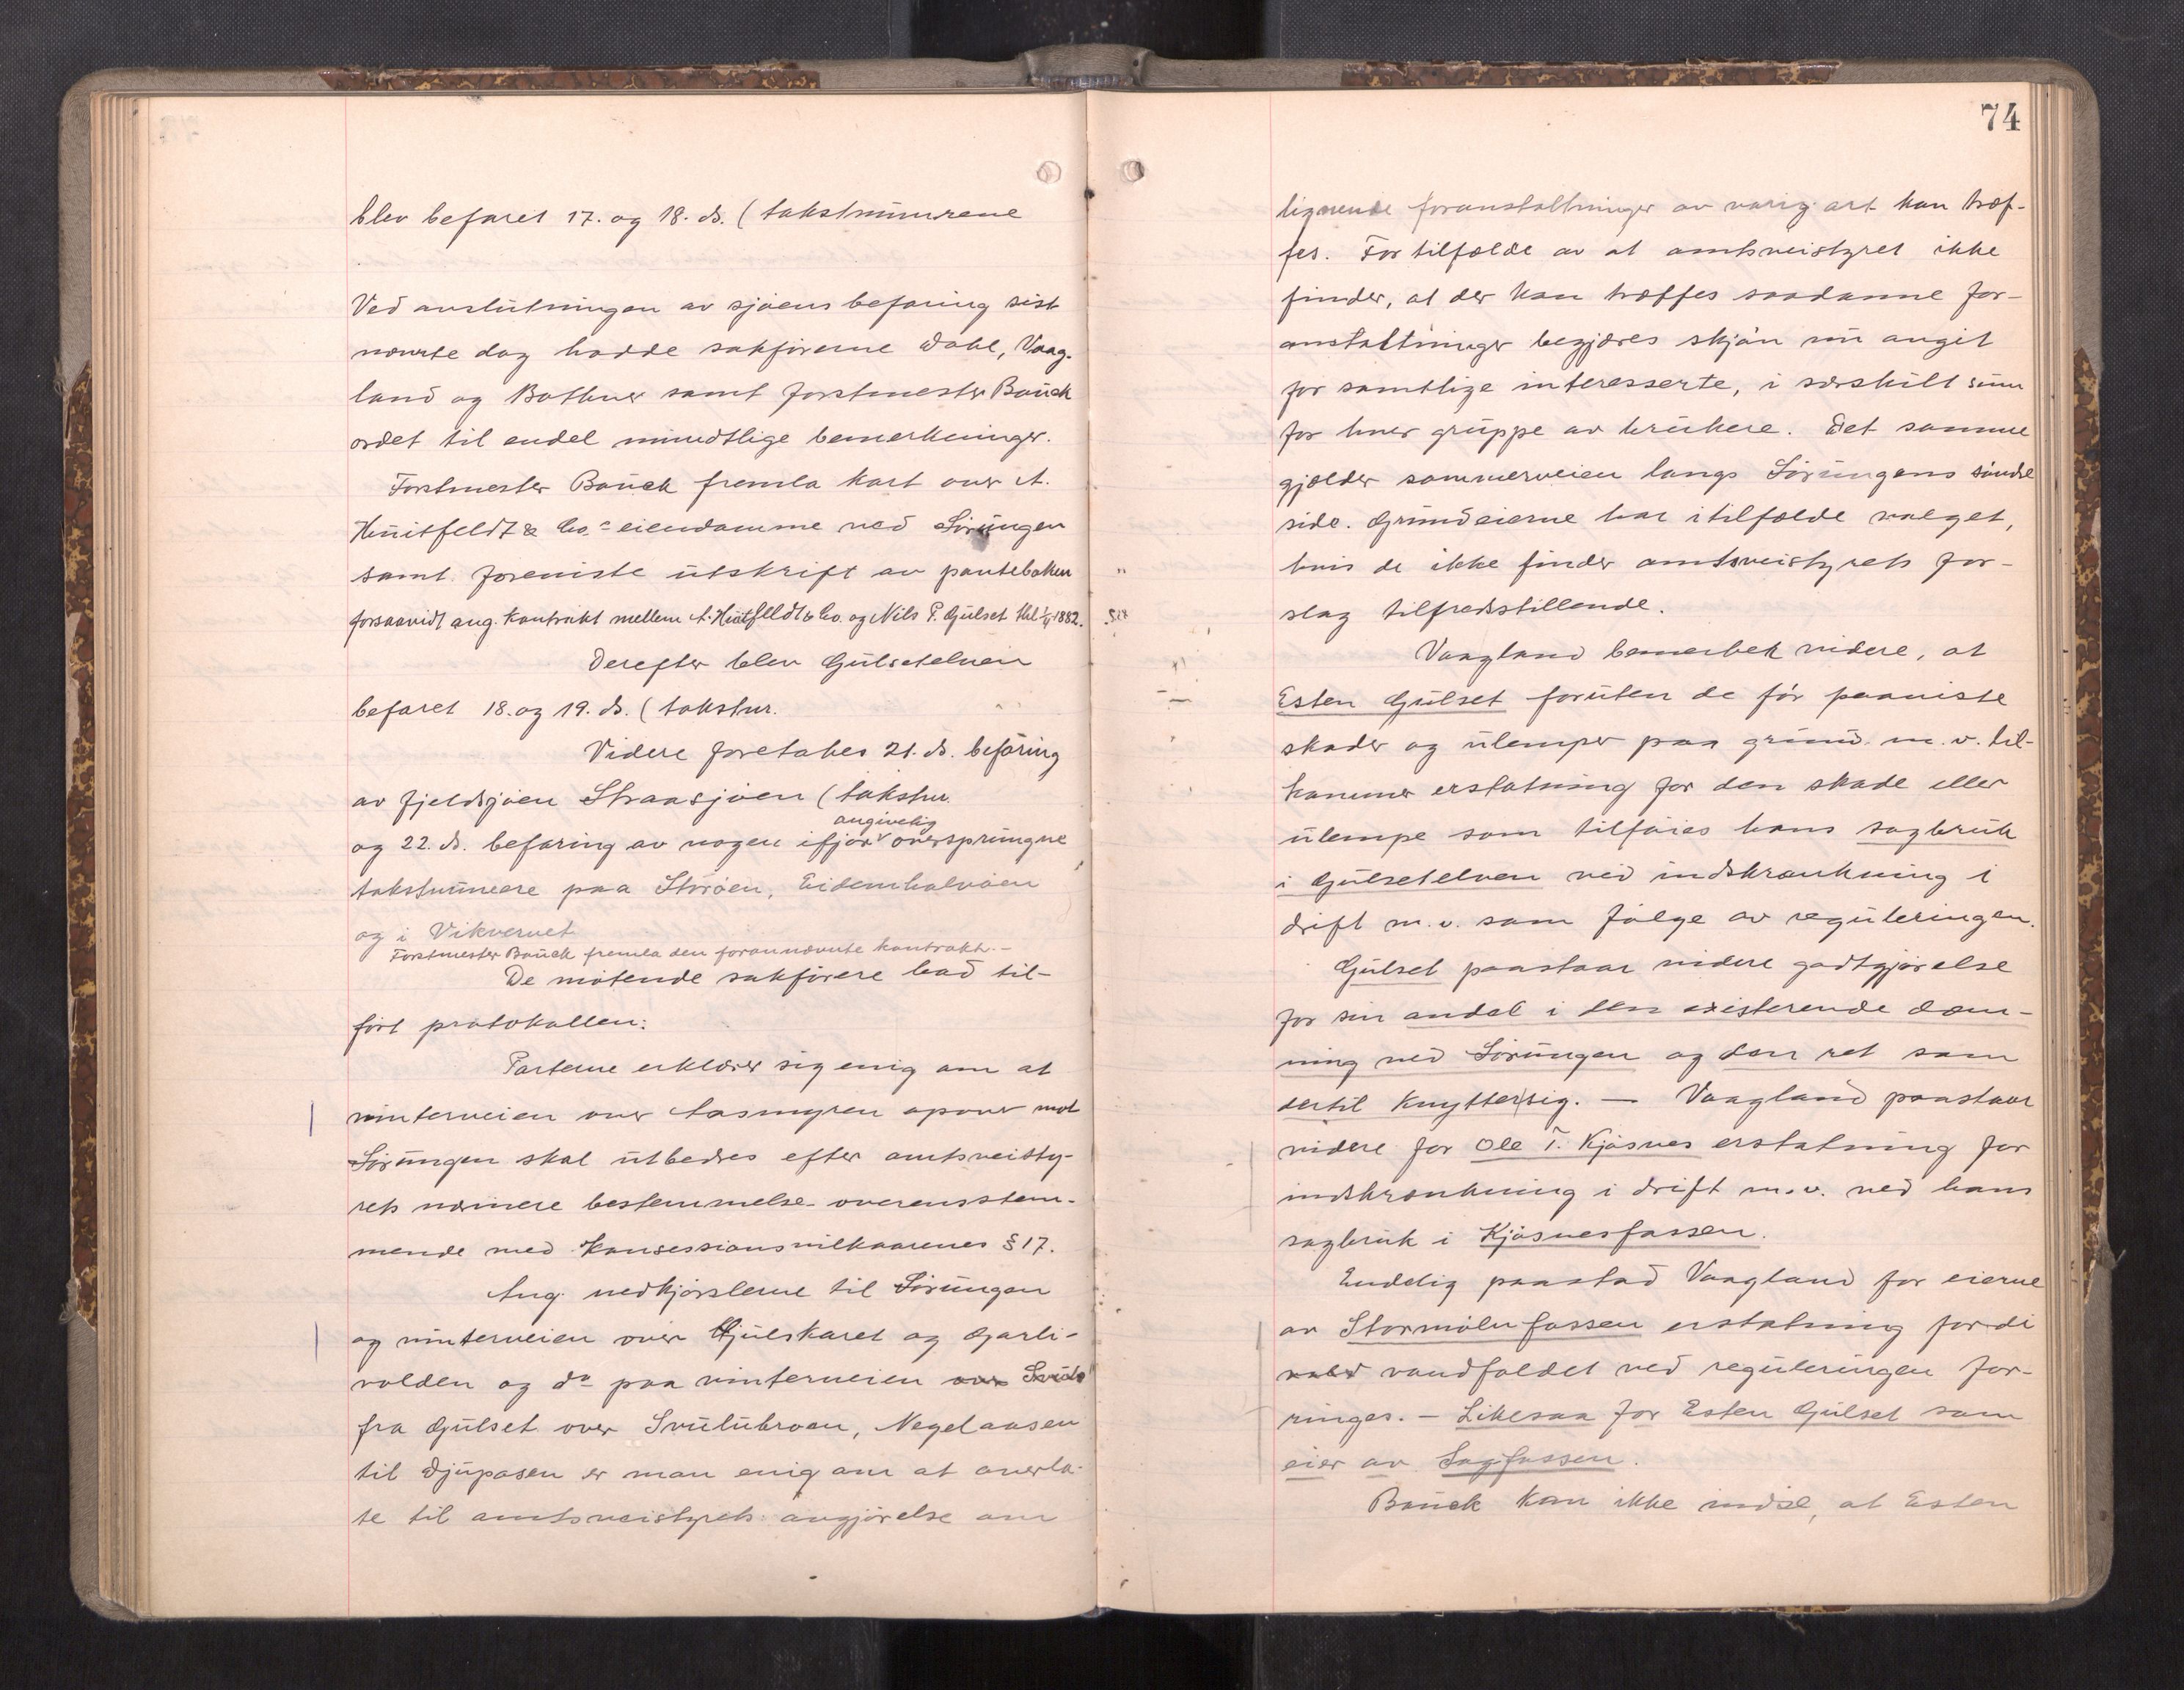 blev befaret 17. og 18. ds. (takstnumrene
Ved avslutningen av sjøens befaring sist
nævnte dag hadde sakførerne Dahl, Vaag-
land og Bothner samt forstmester Bauck
ordet til endel mundtlige bemerkninger.
Forstmester Bauck fremla kart over A.
Huitfeldt & Co.s eiendomme ved Sørungen
samt foreviste utskrift av panteboken
forsaavidt ang. kontrakt mellem A. Huitfeldt & Co. og Nils P. Gulset thl. 1882.
Derefter blev Gulsetelven
befaret 18. og 19. ds. (takstnr.
Videre foretakes 21. ds. befaring
av fjeldsjøen Straasjøen (takstnr.
angivelig
og 22. ds. befaring av nogen ifjor oversprungne
takstnumere paa Storøen, Eidemhalvøen
og i Vikvernet
Forstmester Bauck fremla den forannævnte kontrakt. -
De møtende sakførere bad til-
ført protokollen:
Parterne erklærer sig enig om at
vinterveien over Aasmyren opover mot
Sørungen skal utbedres efter amtsveisty-
rets nærmere bestemmelse overensstem-
mende med konsessionsvilkaarenes § 17.
Ang. nedkjørslerne til Sørungen
og vinterveien over Hjulskaret og Garli-
volden og do paa vinterveien over
fra Gulset over Svulubroen, Negelaasen
til Djupasen er man enig om at overla-
te til amtsveistyrets avgjørelse om
74
lignende foranstaltninger av varig art kan træf-
fes. For tilfælde av at amtsveistyret ikke
finder, at der kan træffes saadanne for-
anstaltninger begjæres skjøn nu avgit
for samtlige interesserte, i særskilt sum
for hver gruppe av brukere. Det samme
gjælder sommerveien langs Sørungens søndre
side. Grundeierne har i tilfælde valget,
hvis de ikke finder amtsveistyrets for-
slag tilfredsstillende.
Vaagland bemerket videre, at
Esten Gulset foruten de før paaviste
skader og ulemper paa grund m.v. til-
kommer erstatning for den skade eller
ulempe som tilføies hans sagbruk
i Gulsetelven ved indskrænkning i
drift m.v. som følge av reguleringen.
Gulset paastaar videre godtgjørelse
for sin andel i den existerende dæm-
ning ved Sørungen og den ret som
dertil knytter sig. — Vaagland paastaar
videre for Ole T. Kjøsnes erstatning for
indskrænkning i drift m.v. ved hans
sagbruk i Kjøsnesfossen.
Endelig paastod Vaagland for eierne
av Stormølnfossen erstatning fordi
vandfaldet ved reguleringen for-
ringes. - Likesaa for Esten Gulset som
eier av Sagfossen.
Bauck kan ikke indse, at Esten